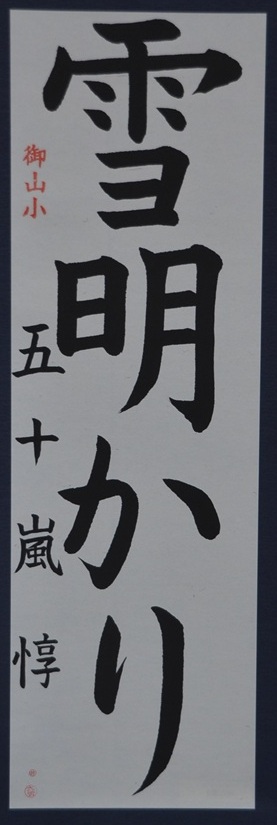 雪明かり
御山小
五十嵐惇